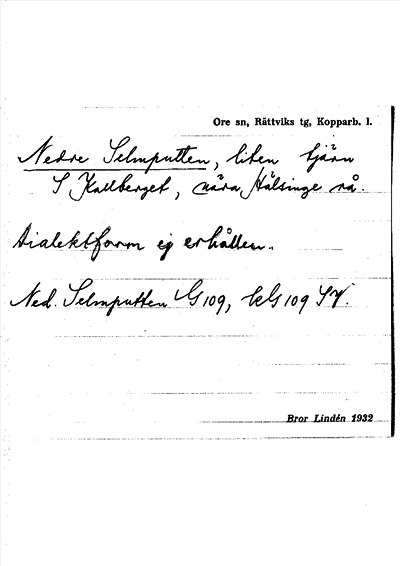 Ore sn, Rättviks tg, Kopparb. l.
Nedre Selmputten, liten tjärn
S Kallberget, nära Hälsinge rå.
Dialektform ej erhållen.
Ned. Selmputten G 109, kG 109 SV.
Bror Lindén 1932